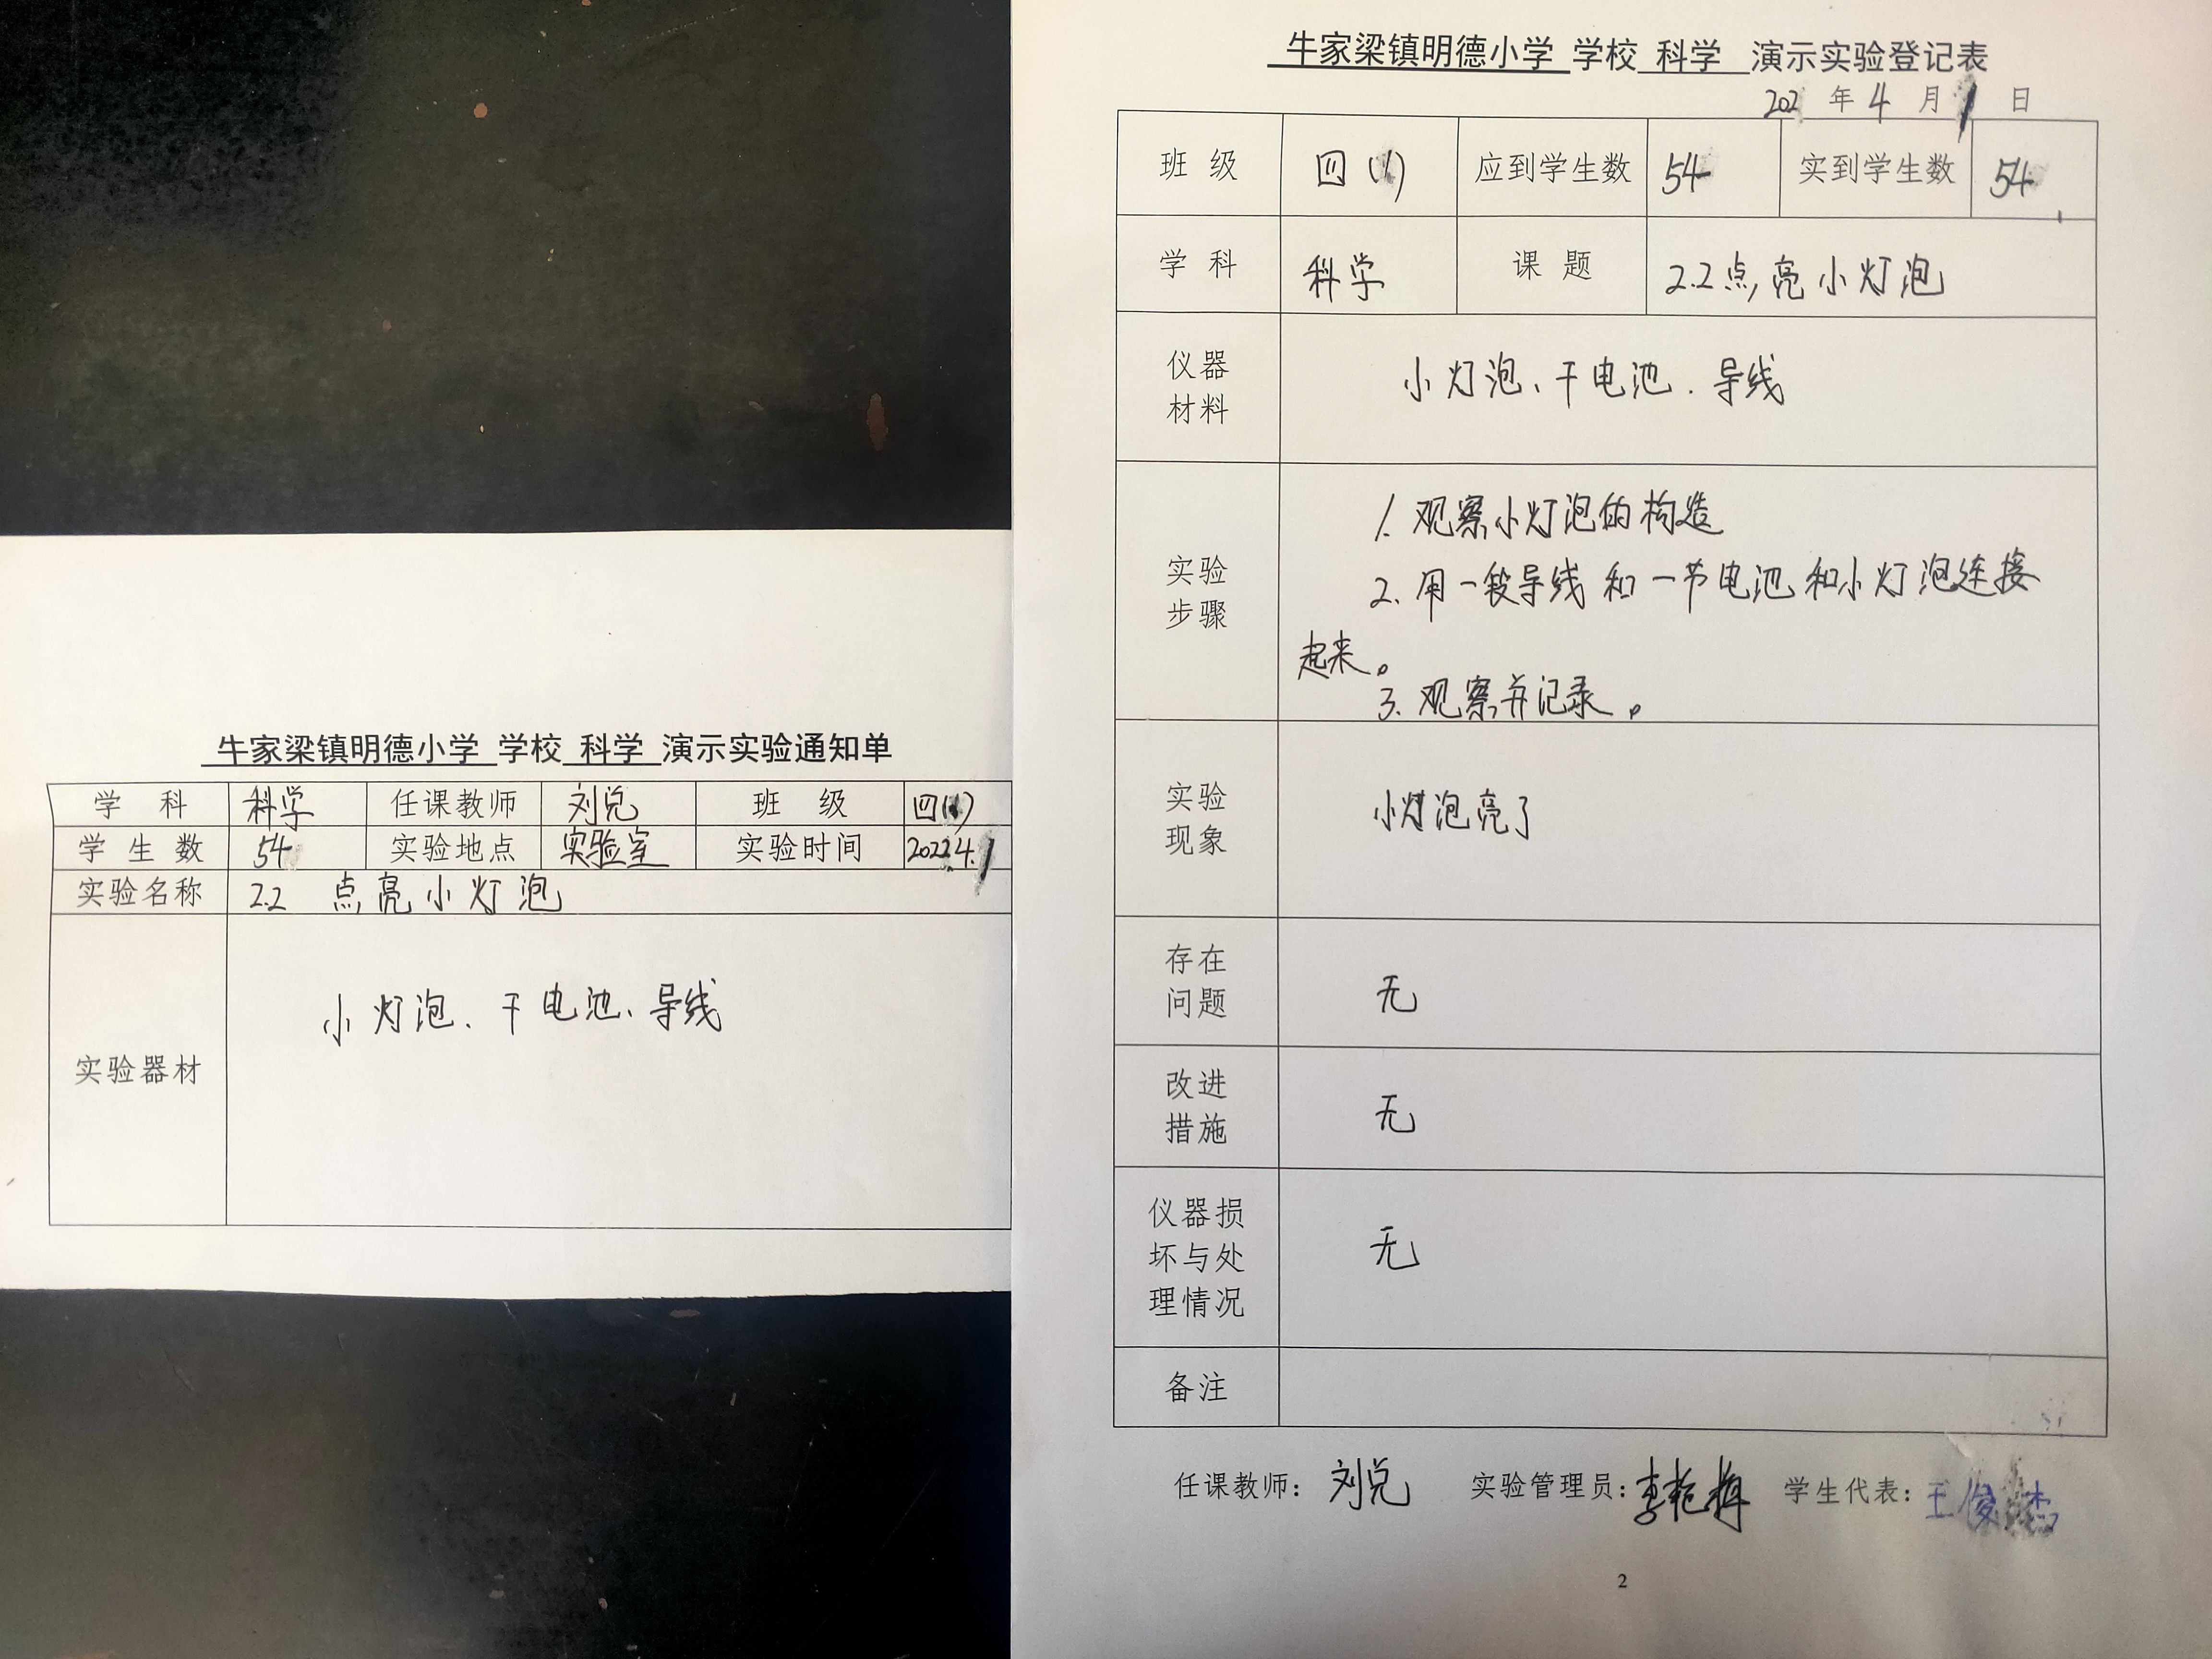 牛家梁镇明德小学 学校 科学 演示实验通知单
学 科 科学 任课教师 刘兑 班 级 四(1)
学 生 数 54 实验地点 实验室 实验时间 2022.4.1
实验名称 2.2 点亮小灯泡
实验器材 小灯泡、干电池、导线
牛家梁镇明德小学 学校 科学 演示实验登记表
202 年 4 月 1 日
班 级 四(1) 应到学生数 54 实到学生数 54
学 科 科学 课 题 2.2点亮小灯泡
仪器
材料
小灯泡、干电池.导线
实验
步骤
1. 观察小灯泡的构造
2. 用一段导线和一节电池和小灯泡连接
起来。
3. 观察并记录。
实验
现象
小灯泡亮了
存在
问题
无
改进
措施
无
仪器损
坏与处
理情况
无
备注
任课教师：刘兑 实验管理员：李艳梅 学生代表：王俊杰
2